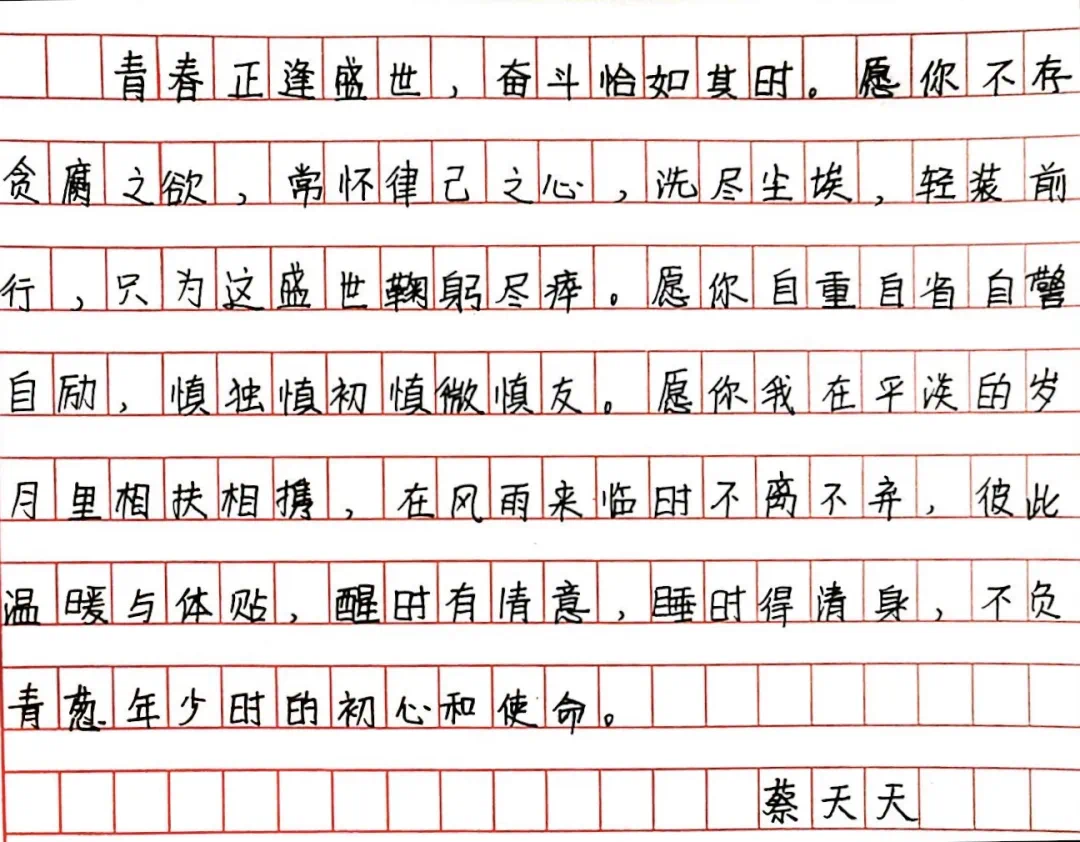 青春正逢盛世，奋斗恰如其时。愿你不存
贪腐之欲，常怀律己之心，洗尽尘埃，轻装前
行，只为这盛世鞠躬尽瘁。愿你自重自省自警
自励，慎独慎初慎微慎友。愿你我在平淡的岁
月里相扶相携，在风雨来临时不离不弃，彼此
温暖与体贴，醒时有情意，睡时得清身，不负
青葱年少时的初心和使命。
蔡天天